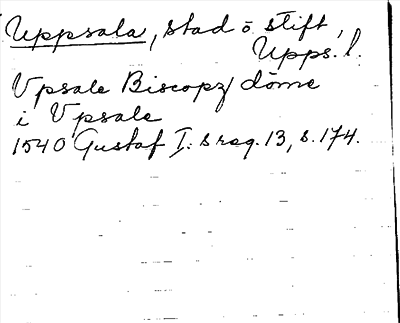 Uppsala, stad o. stift,
Upps. l.
Vpsale Biscopz döme
i Vpsale
1540 Gustaf I:s reg. 13, s. 174.